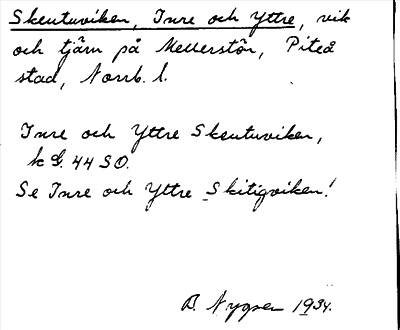 Skeutuviken, Inre och Yttre, vik
och tjärn på Mellerstön, Piteå
stad, Norrb. l.
Inre och Yttre Skeutuviken,
k G. 44 SO.
Se Inre och Yttre Skitigviken!
B. Nygren 1934.